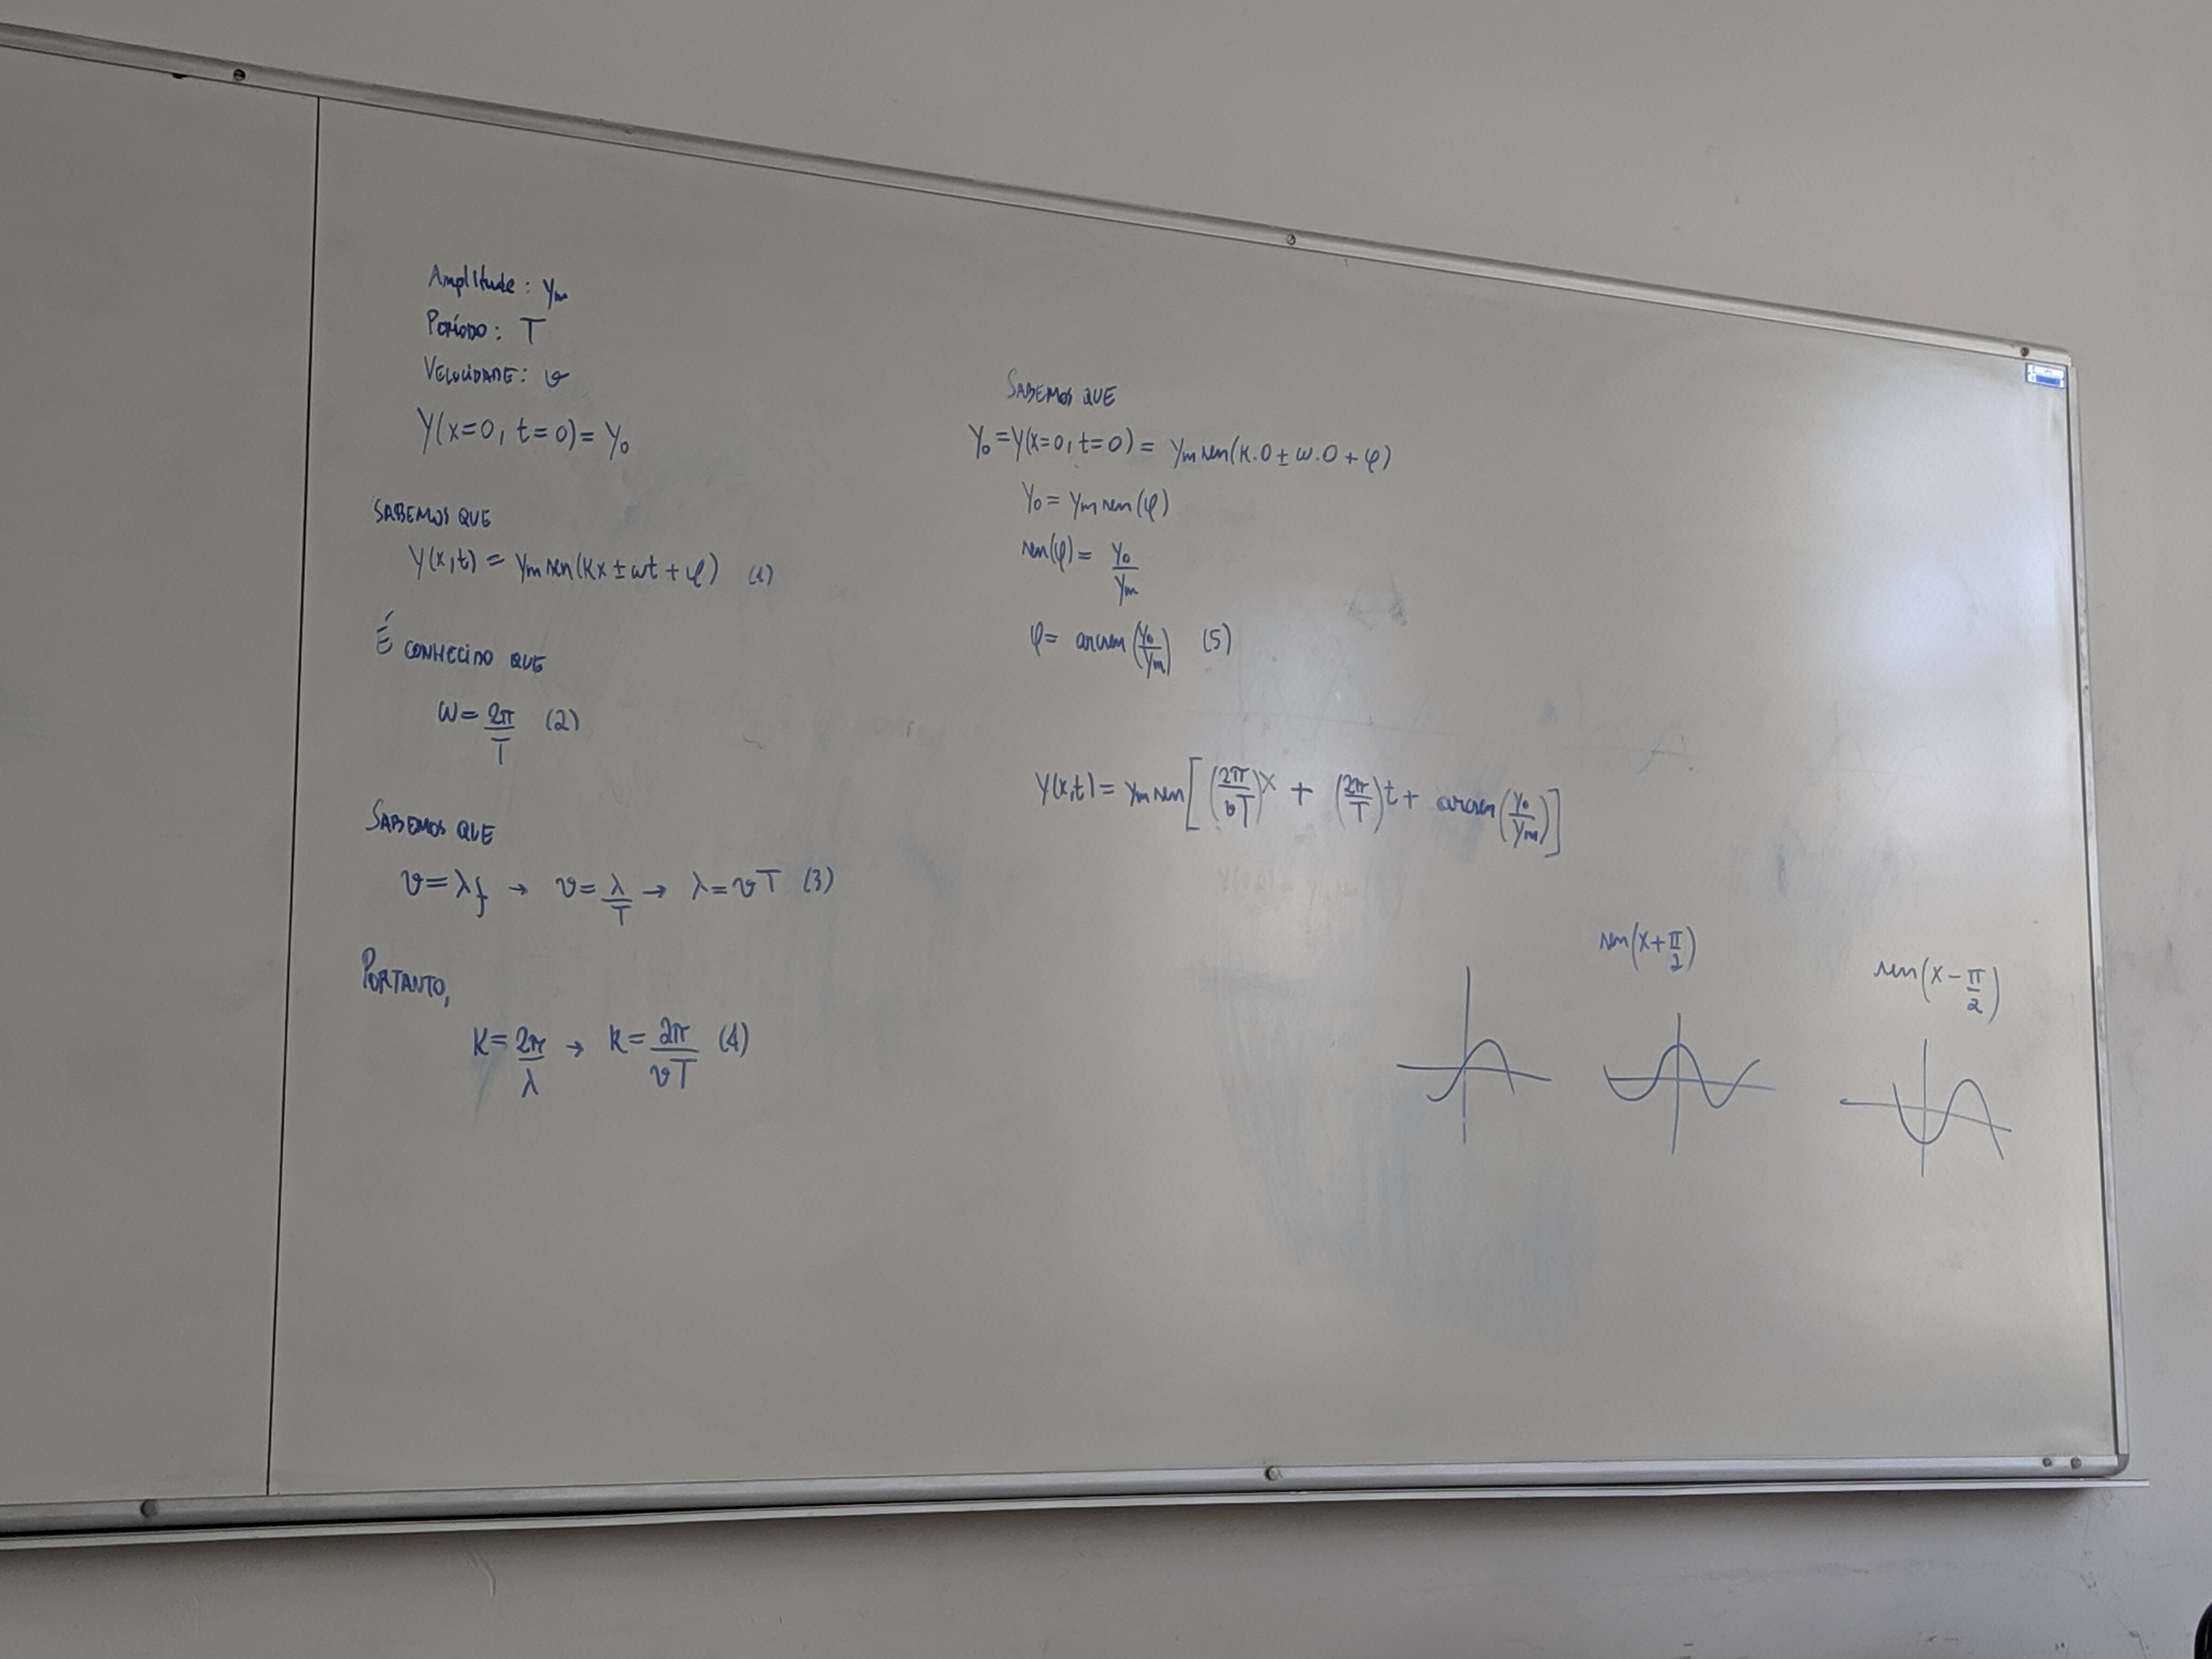 Amplitude: ym
Período: T
VELOCIDADE: v
Y(x=0, t=0) = Y0
SABEMOS QUE
Y(x,t) = ym sen(Kx ± ωt + φ) (1)
É CONHECIDO QUE
ω = 2π/T (2)
SABEMOS QUE
v = λf → v = λ/T → λ = vT (3)
PORTANTO,
K = 2π/λ → k = 2π/vT (4)
SABEMOS QUE
Y0 = Y(x=0, t=0) = ym sen(k.0 ± ω.0 + φ)
Y0 = ym sen(φ)
sen(φ) = y0/ym
φ = arcsen(y0/ym) (5)
Y(x,t) = ym sen[(2π/vT)x + (2π/T)t + arcsen(y0/ym)]
sen(x+π/2)
sen(x-π/2)